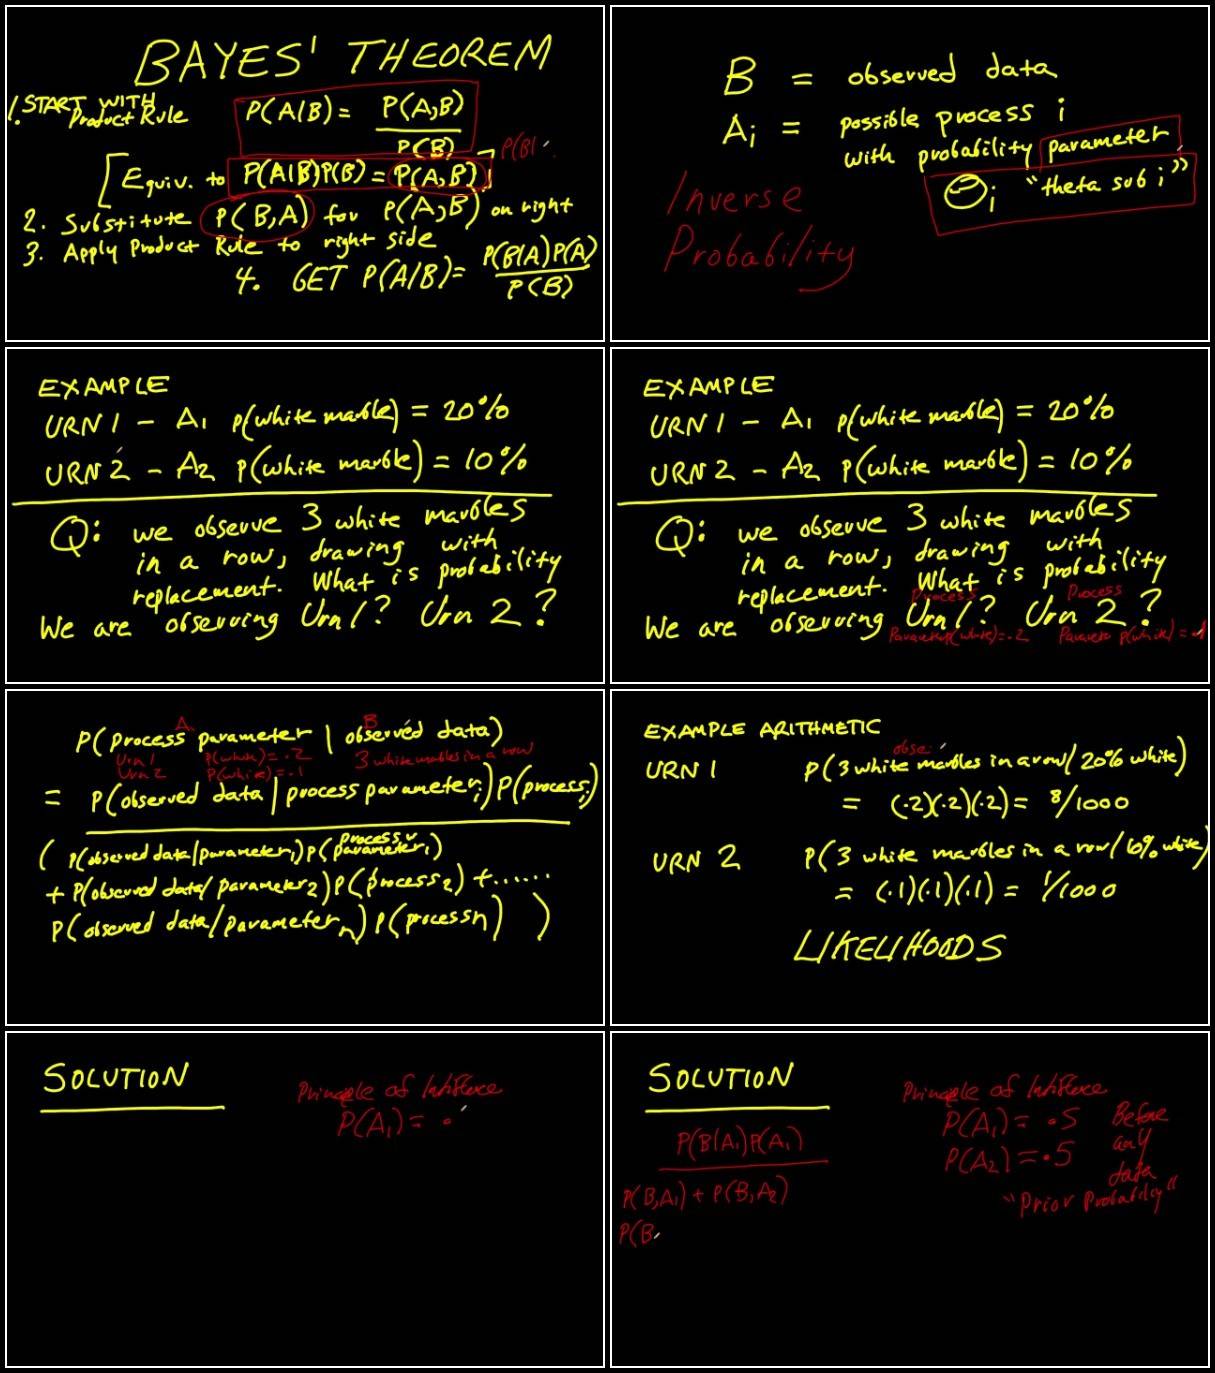 BAYES' THEOREM
1. START WITH
Product Rule
P(A|B) = P(A,B)
P(B)
[Equiv. to P(A|B)P(B) = P(A,B)] P(B|
2. Substitute P(B,A) for P(A,B) on right
3. Apply Product Rule to right side
4. GET P(A|B) = P(B|A)P(A)
P(B)
B = observed data
Ai = possible process i
with probability parameter
Θi "theta sub i"
Inverse
Probability
EXAMPLE
URN 1 - A1 p(white marble) = 20%
URN 2 - A2 p(white marble) = 10%
Q: we observe 3 white marbles
in a row, drawing with
replacement. What is probability
We are observing Urn 1? Urn 2?
EXAMPLE
URN 1 - A1 p(white marble) = 20%
URN 2 - A2 p(white marble) = 10%
Q: we observe 3 white marbles
in a row, drawing with
replacement. What is probability
Process Process
We are observing Urn 1? Urn 2?
Parameter p(white) = .2 p(white) = .1
A B
P(process parameter | observed data)
Urn 1 P(white) = .2 3 white marbles in a row
Urn 2 P(white) = .1
= P(observed data | process parameteri) P(processi)
process1
( P(observed data/parameter1) P(parameter1)
+ P(observed data/parameter2) P(process2) + ......
P(observed data/parametern) P(processn) )
EXAMPLE ARITHMETIC
obse
URN 1 P(3 white marbles in a row/20% white)
= (.2)(.2)(.2) = 8/1000
URN 2 P(3 white marbles in a row/10% white)
= (.1)(.1)(.1) = 1/1000
LIKELIHOODS
SOLUTION
Principle of
P(A1) = .
SOLUTION
Principle of
P(A1) = .5 Before
P(A2) = .5 any
data
"Prior Probability"
P(B|A1)P(A1)
P(B,A1) + P(B,A2)
P(B